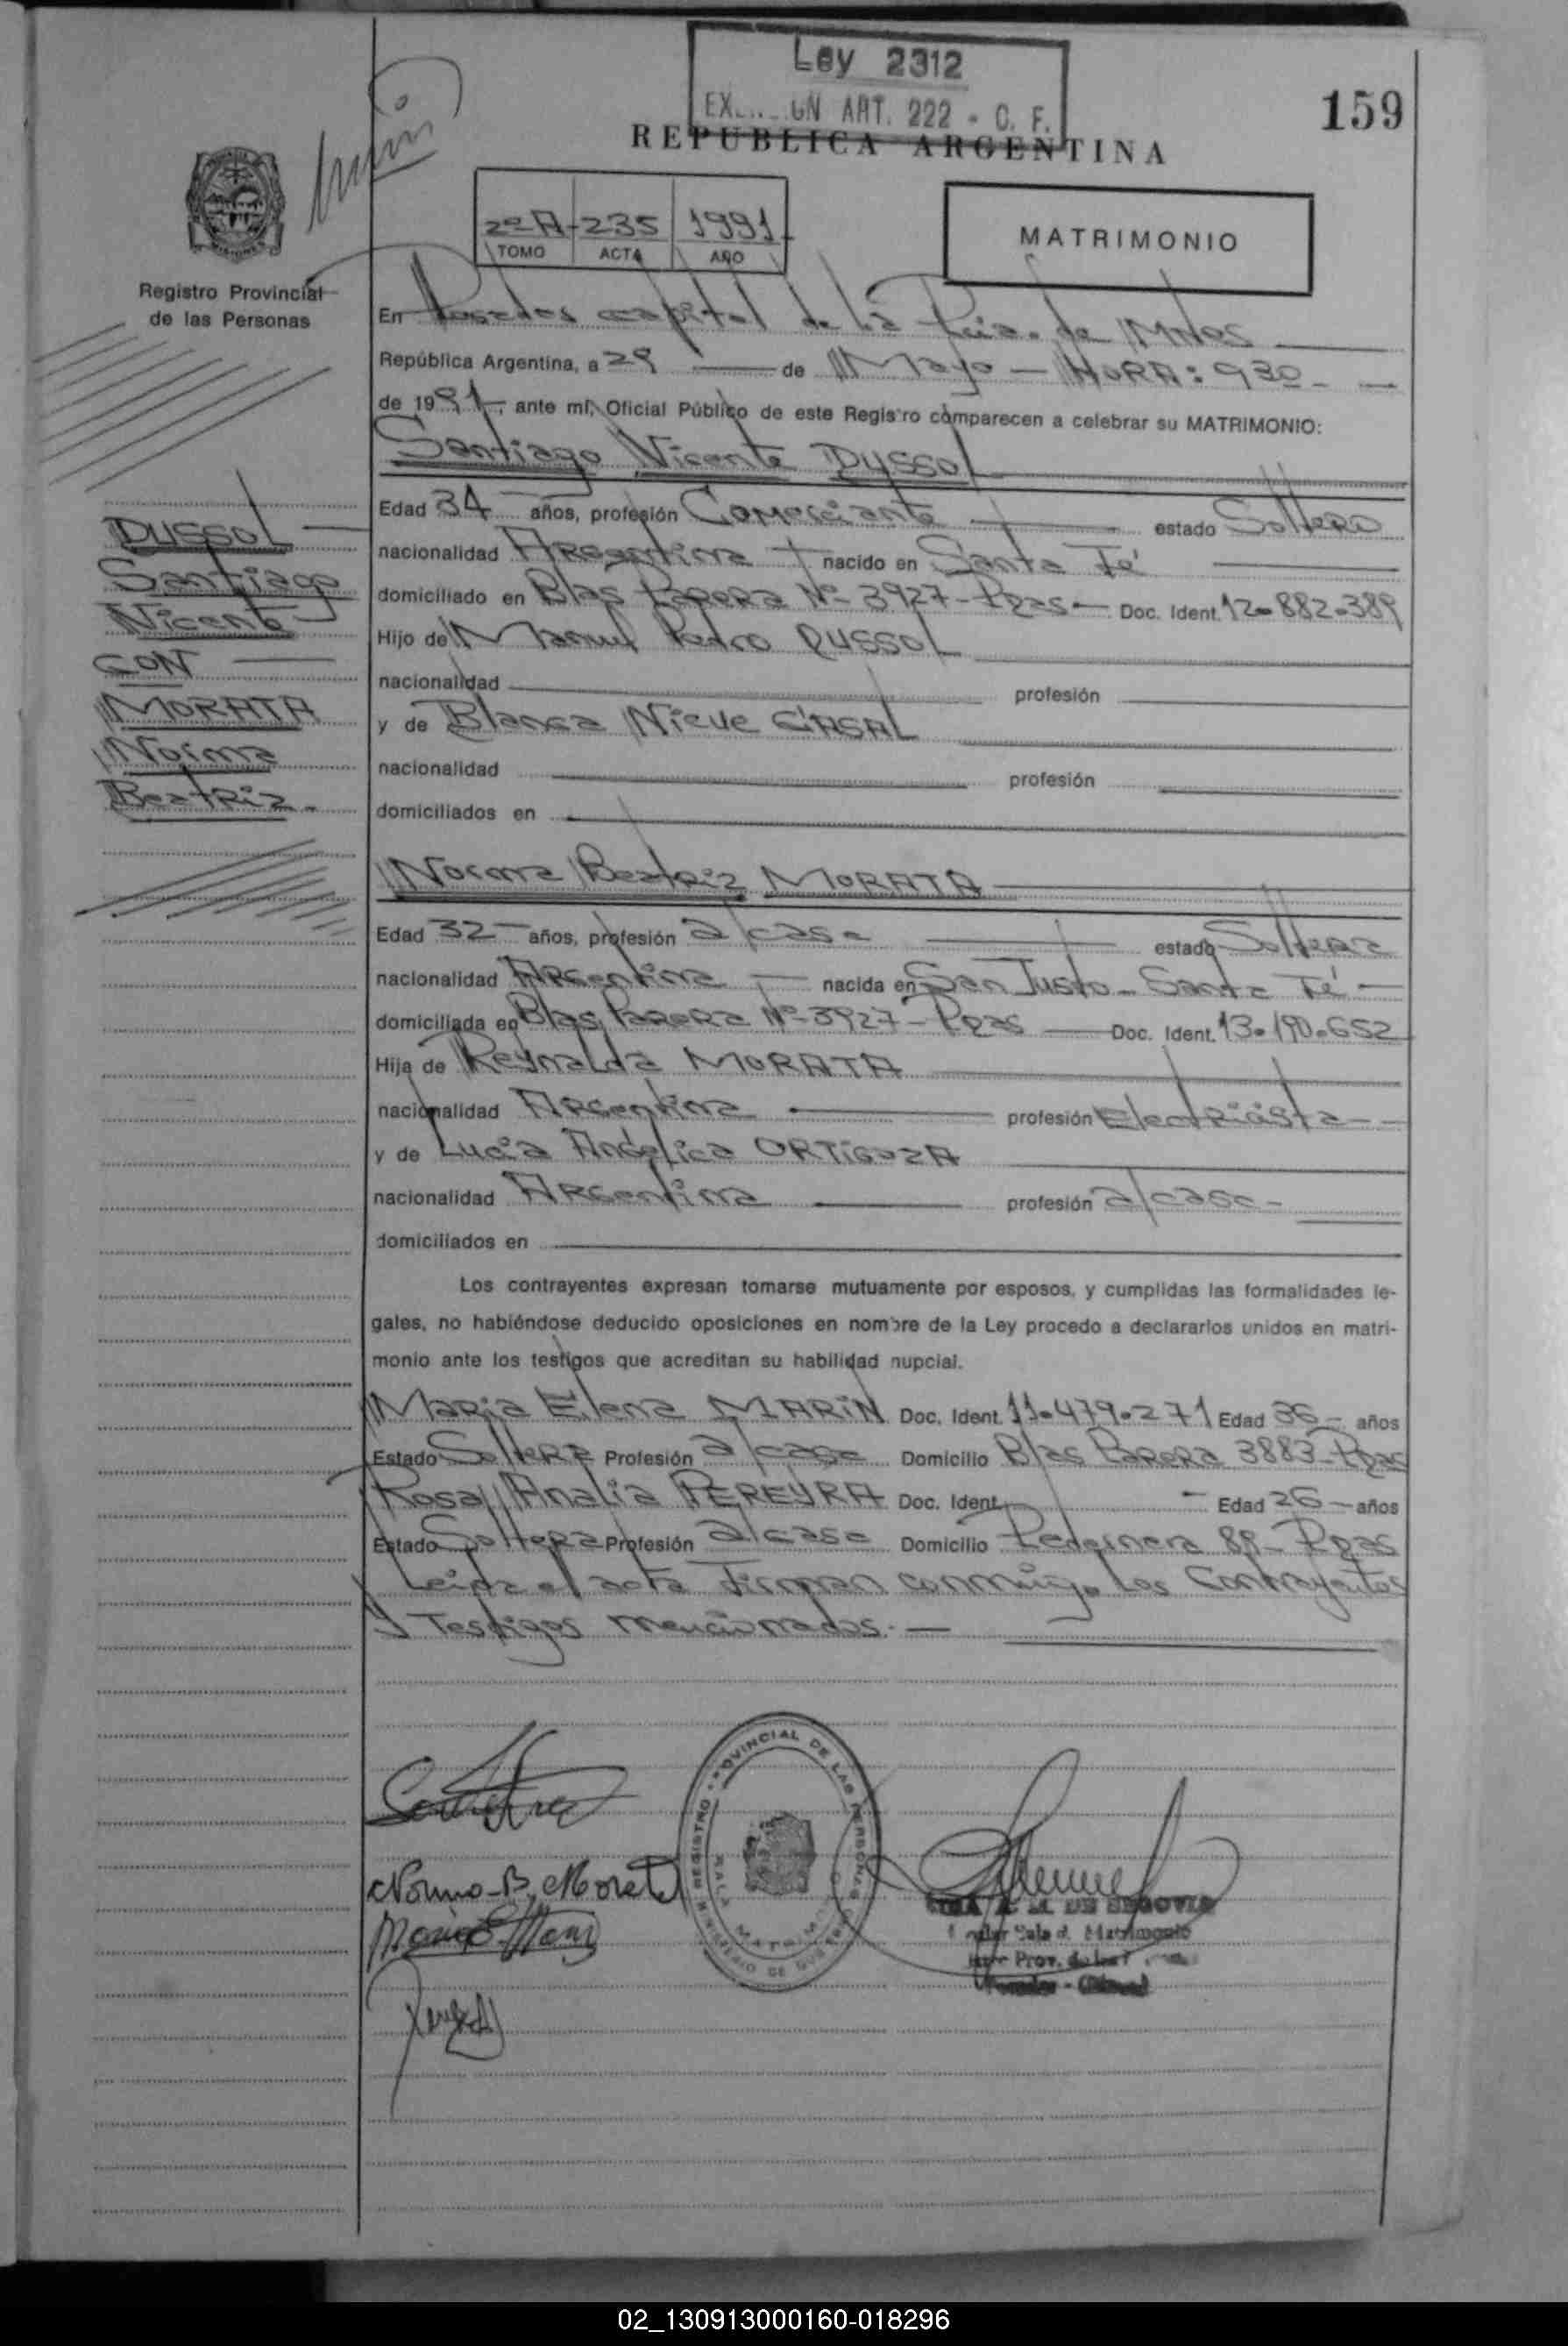 Ley 2312
ART. 222 - C. F.
159
REPUBLICA ARGENTINA
2º A - 235 1991
TOMO ACTA AÑO
MATRIMONIO
MISIONES
Registro Provincial
de las Personas
En Posadas capital de la Pcia. de Mnes
República Argentina, a 29 de Mayo - HORA: 930 -
de 1991, ante mí, Oficial Público de este Registro comparecen a celebrar su MATRIMONIO:
Santiago Vicente DUSSOL
Edad 34 años, profesión Comerciante estado Soltero
nacionalidad Argentina nacido en Santa Fé
domiciliado en Blas Parera Nº 3927 - Pdas - Doc. Ident. 12.882.389
Hijo de Manuel Pedro DUSSOL
nacionalidad profesión
y de Blanca Nieve CASAL
nacionalidad profesión
domiciliados en
DUSSOL
Santiago
Vicente
CON
MORATA
Norma
Beatriz.
Norma Beatriz MORATA
Edad 32 años, profesión a/casa estado Soltera
nacionalidad Argentina nacida en San Justo - Santa Fé -
domiciliada en Blas Parera Nº 3927 - Pdas Doc. Ident. 13.190.652
Hija de Reynaldo MORATA
nacionalidad Argentina profesión Electricista
y de Lucia Angélica ORTIGOZA
nacionalidad Argentina profesión a/casa -
domiciliados en
Los contrayentes expresan tomarse mutuamente por esposos, y cumplidas las formalidades le-
gales, no habiéndose deducido oposiciones en nombre de la Ley procedo a declararlos unidos en matri-
monio ante los testigos que acreditan su habilidad nupcial.
Maria Elena MARIN Doc. Ident. 11.479.271 Edad 36 - años
Estado Soltera Profesión a/casa Domicilio Blas Parera 3883 - Pdas
Rosa Analia PEREYRA Doc. Ident. - Edad 26 - años
Estado Soltera Profesión a/casa Domicilio Pedernera 89 - Pdas
Leida el acta firman conmigo los Contrayentes
y Testigos mencionados. -
Norma B. Morata
REGISTRO PROVINCIAL DE LAS PERSONAS
SALA MATRIMONIO
MINISTERIO DE GOBIERNO
DE SEGOVIA
Sala d. Matrimonio
Prov. de las
02_130913000160-018296